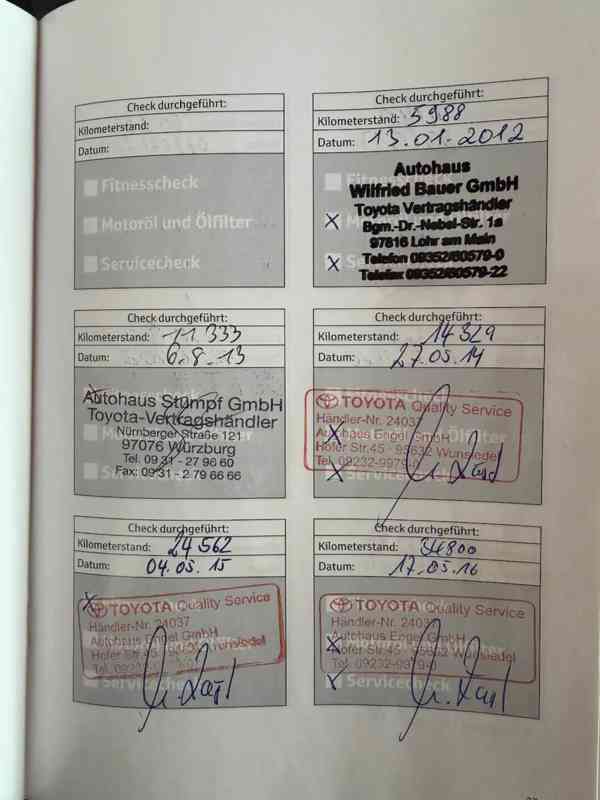 Check durchgeführt:
Kilometerstand:
Datum:
Fitnesscheck
Motoröl und Ölfilter
Servicecheck
Check durchgeführt:
Kilometerstand: 5988
Datum: 13.01.2012
Autohaus
Wilfried Bauer GmbH
Toyota Vertragshändler
Bgm.-Dr.-Nebel-Str. 1a
97816 Lohr am Main
Telefon 09352/80579-0
Telefax 09352/80579-22
Check durchgeführt:
Kilometerstand: 11.333
Datum: 6.8.13
Autohaus Stumpf GmbH
Toyota-Vertragshändler
Nürnberger Straße 121
97076 Würzburg
Tel. 09 31 - 27 96 60
Fax: 09 31 - 2 79 66 66
Check durchgeführt:
Kilometerstand: 14329
Datum: 27.05.14
TOYOTA Quality Service
Händler-Nr. 24037
Autohaus Engel GmbH
Ölfilter
Hofer Str.45 - 95632 Wunsiedel
Tel. 09232-9979-0
Check durchgeführt:
Kilometerstand: 24562
Datum: 04.05.15
TOYOTA Quality Service
Händler-Nr. 24037
Autohaus Engel GmbH
Hofer Str.45 - Wunsiedel
Servicecheck
Check durchgeführt:
Kilometerstand: 34800
Datum: 17.05.16
TOYOTA Quality Service
Händler-Nr. 24037
Autohaus Engel GmbH
Hofer Str.45 - 95632 Wunsiedel
Tel. 09232-9979-0
Servicecheck